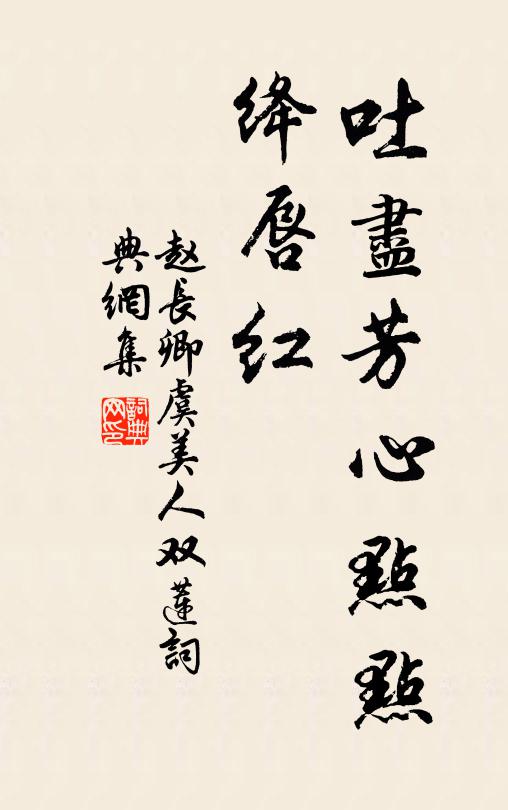 吐盡芳心點點
绛唇红
赵長卿虞美人双蓮詞
典網集
詞典网印